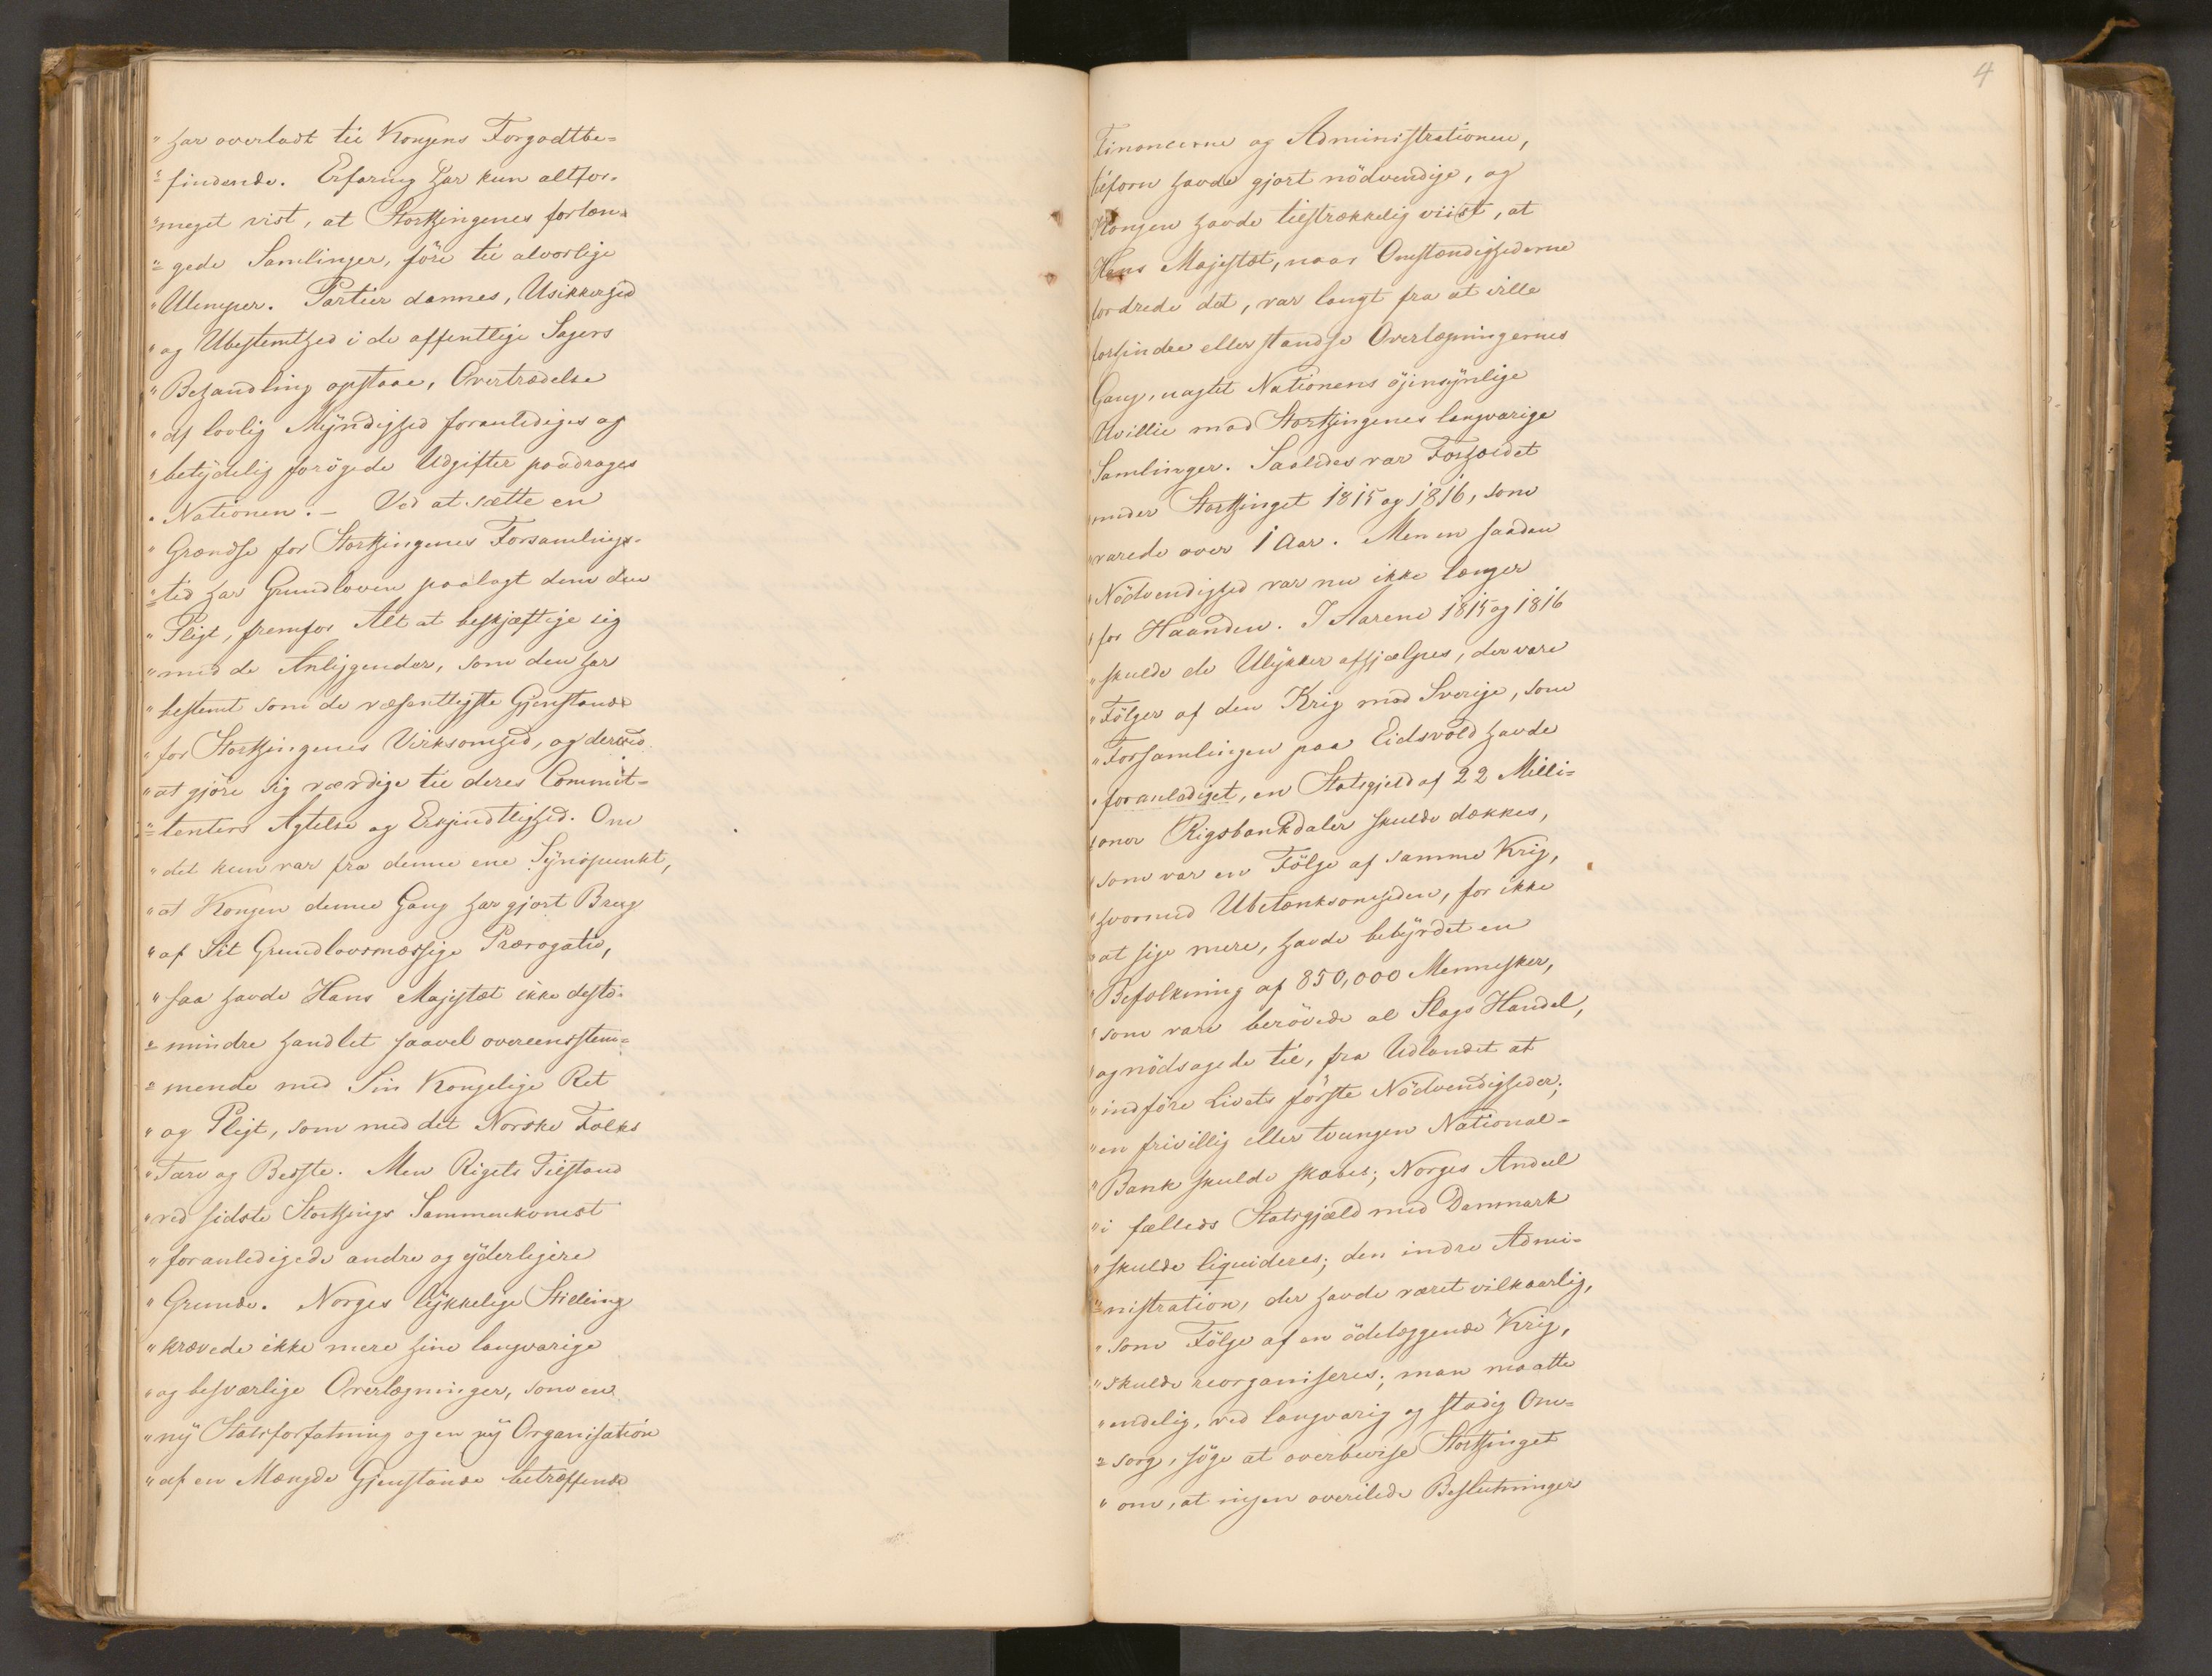 " har overladt til Kongens Forgodtbe-
"= findende. Erfaring har kun altfor-
"= meget vist, at Storthingenes forlæn-
"= gede Samlinger, føre til alvorlige
" Ulemper. Partier dannes, Usikkerhed
" og Ubestemthed i de offentlige Sagers
" Behandling opstaae, Overtrædelse
" af lovlig Myndighed foranlediges og
" betydelig forøgede Udgifter paadrages
" Nationen. – Ved at sætte en
" Grændse for Storthingenes Forsamlings-
"= tid har Grundloven paalagt dem den
" Pligt, fremfor Alt at beskjæftige sig
" med de Anliggender, som den har
" bestemt som de væsentligste Gjenstande
" for Storthingenes Virksomhed, og derved
" at gjöre sig værdige til deres Commit-
"= tenters Agtelse og Erkjendtlighed. Om
" det kun var fra denne ene Synspunkt,
" at Kongen denne Gang har gjort Brug
" af Sit Grundlovsmæssige Prærogativ,
" saa havde Hans Majestæt ikke desto-
"= mindre handlet saavel overeensstem-
"= mende med Sin Kongelige Ret
" og Pligt, som med det Norske Folks
" Tarv og Bedste. Men Rigets Tilstand
" ved sidste Storthings Sammenkomst
" foranledigede andre og yderligere
" Grunde. Norges lykkelige Stilling
" krævede ikke mere hine langvarige
" og besværlige Overlægninger, som en
" ny Statsforfatning og en ny Organisation
" af en Mængde Gjenstande betræffende
4
Financerne og Administrationen,
tilforn havde gjort nödvendige, og
Kongen havde tilstrækkelig viist, at
Hans Majestæt, naar Omstændighederne
fordrede det, var langt fra at ville
forhindre eller standse Overlægningernes
Gang, uagtet Nationens öjensynlige
Uvillie mod Storthingenes langvarige
Samlinger. Saaledes var Forholdet
under Storthinget 1815 og 1816, som
" varede over 1 Aar. Men en saadan
" Nödvendighed var nu ikke længer
" for Haanden. I Aarene 1815 og 1816
" skulde de Ulykker afhjælpes, der vare
" Fölger af den Krig mod Sverige, som
" Forsamlingen paa Eidsvold havde
" foranlediget, en Statsgjeld af 22 Milli-
" oner Rigsbankdaler skulde dækkes,
" som var en Fölge af samme Krig,
" hvormed Ubetænksomheden, for ikke
" at sige mere, havde bebyrdet en
" Befolkning af 850,000 Mennesker,
" som vare berövede al Slags Handel,
" og nödsagede til, fra Udlandet at
" indföre Livets förste Nödvendigheder;
" en frivillig eller tvungen National-
" Bank skulde skabes; Norges Andeel
" i fælleds Statsgjæld med Danmark
" skulde liquideres; den indre Admi-
"= nistration, der havde været vilkaarlig,
" som Fölge af en ödelæggende Krig,
" skulde reorganiseres; man maatte
" endelig, ved langvarig og stadig Om-
"= sorg, söge at overbevise Storthinget
" om, at ingen overilede Beslutninger